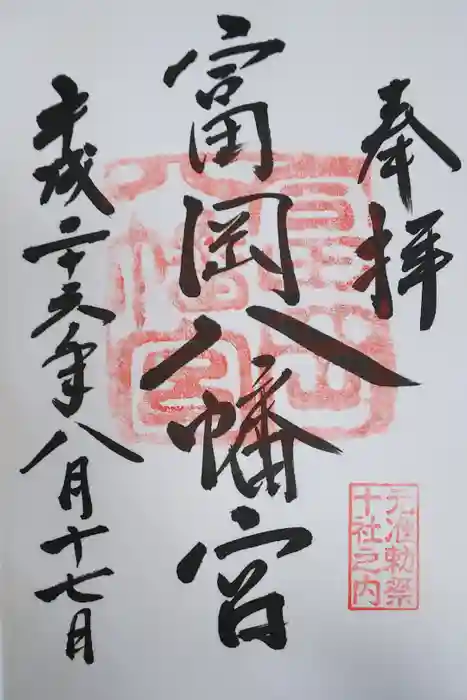 奉拝
富岡八幡宮
平成二十五年八月十七日
元准勅祭
十社之内